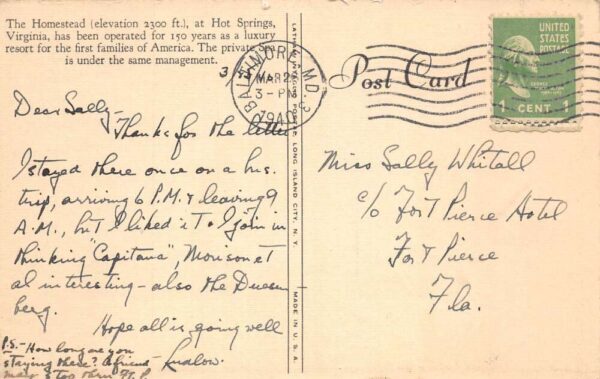 The Homestead (elevation 2300 ft.), at Hot Springs,
Virginia, has been operated for 150 years as a luxury
resort for the first families of America. The private Spa
is under the same management.
Dear Sally-
Thanks for the letter
I stayed there once on a bus.
trip, arriving 6 P.M. & leaving 9
A.M., but I liked it. I join in
thinking "Capitana", Morison et
al interesting - also the Duesen
berg.
Hope all is going well
Ludlow.
P.S. - How long are you
staying there? A friend
may stop thru Ft. P.
MADE IN U.S.A.
BALTIMORE, MD. 3
MAR 25
3-PM
1940
Post Card
UNITED
STATES
POSTAGE
1 CENT 1
Miss Sally Whitall
c/o Fort Pierce Hotel
Fort Pierce
Fla.